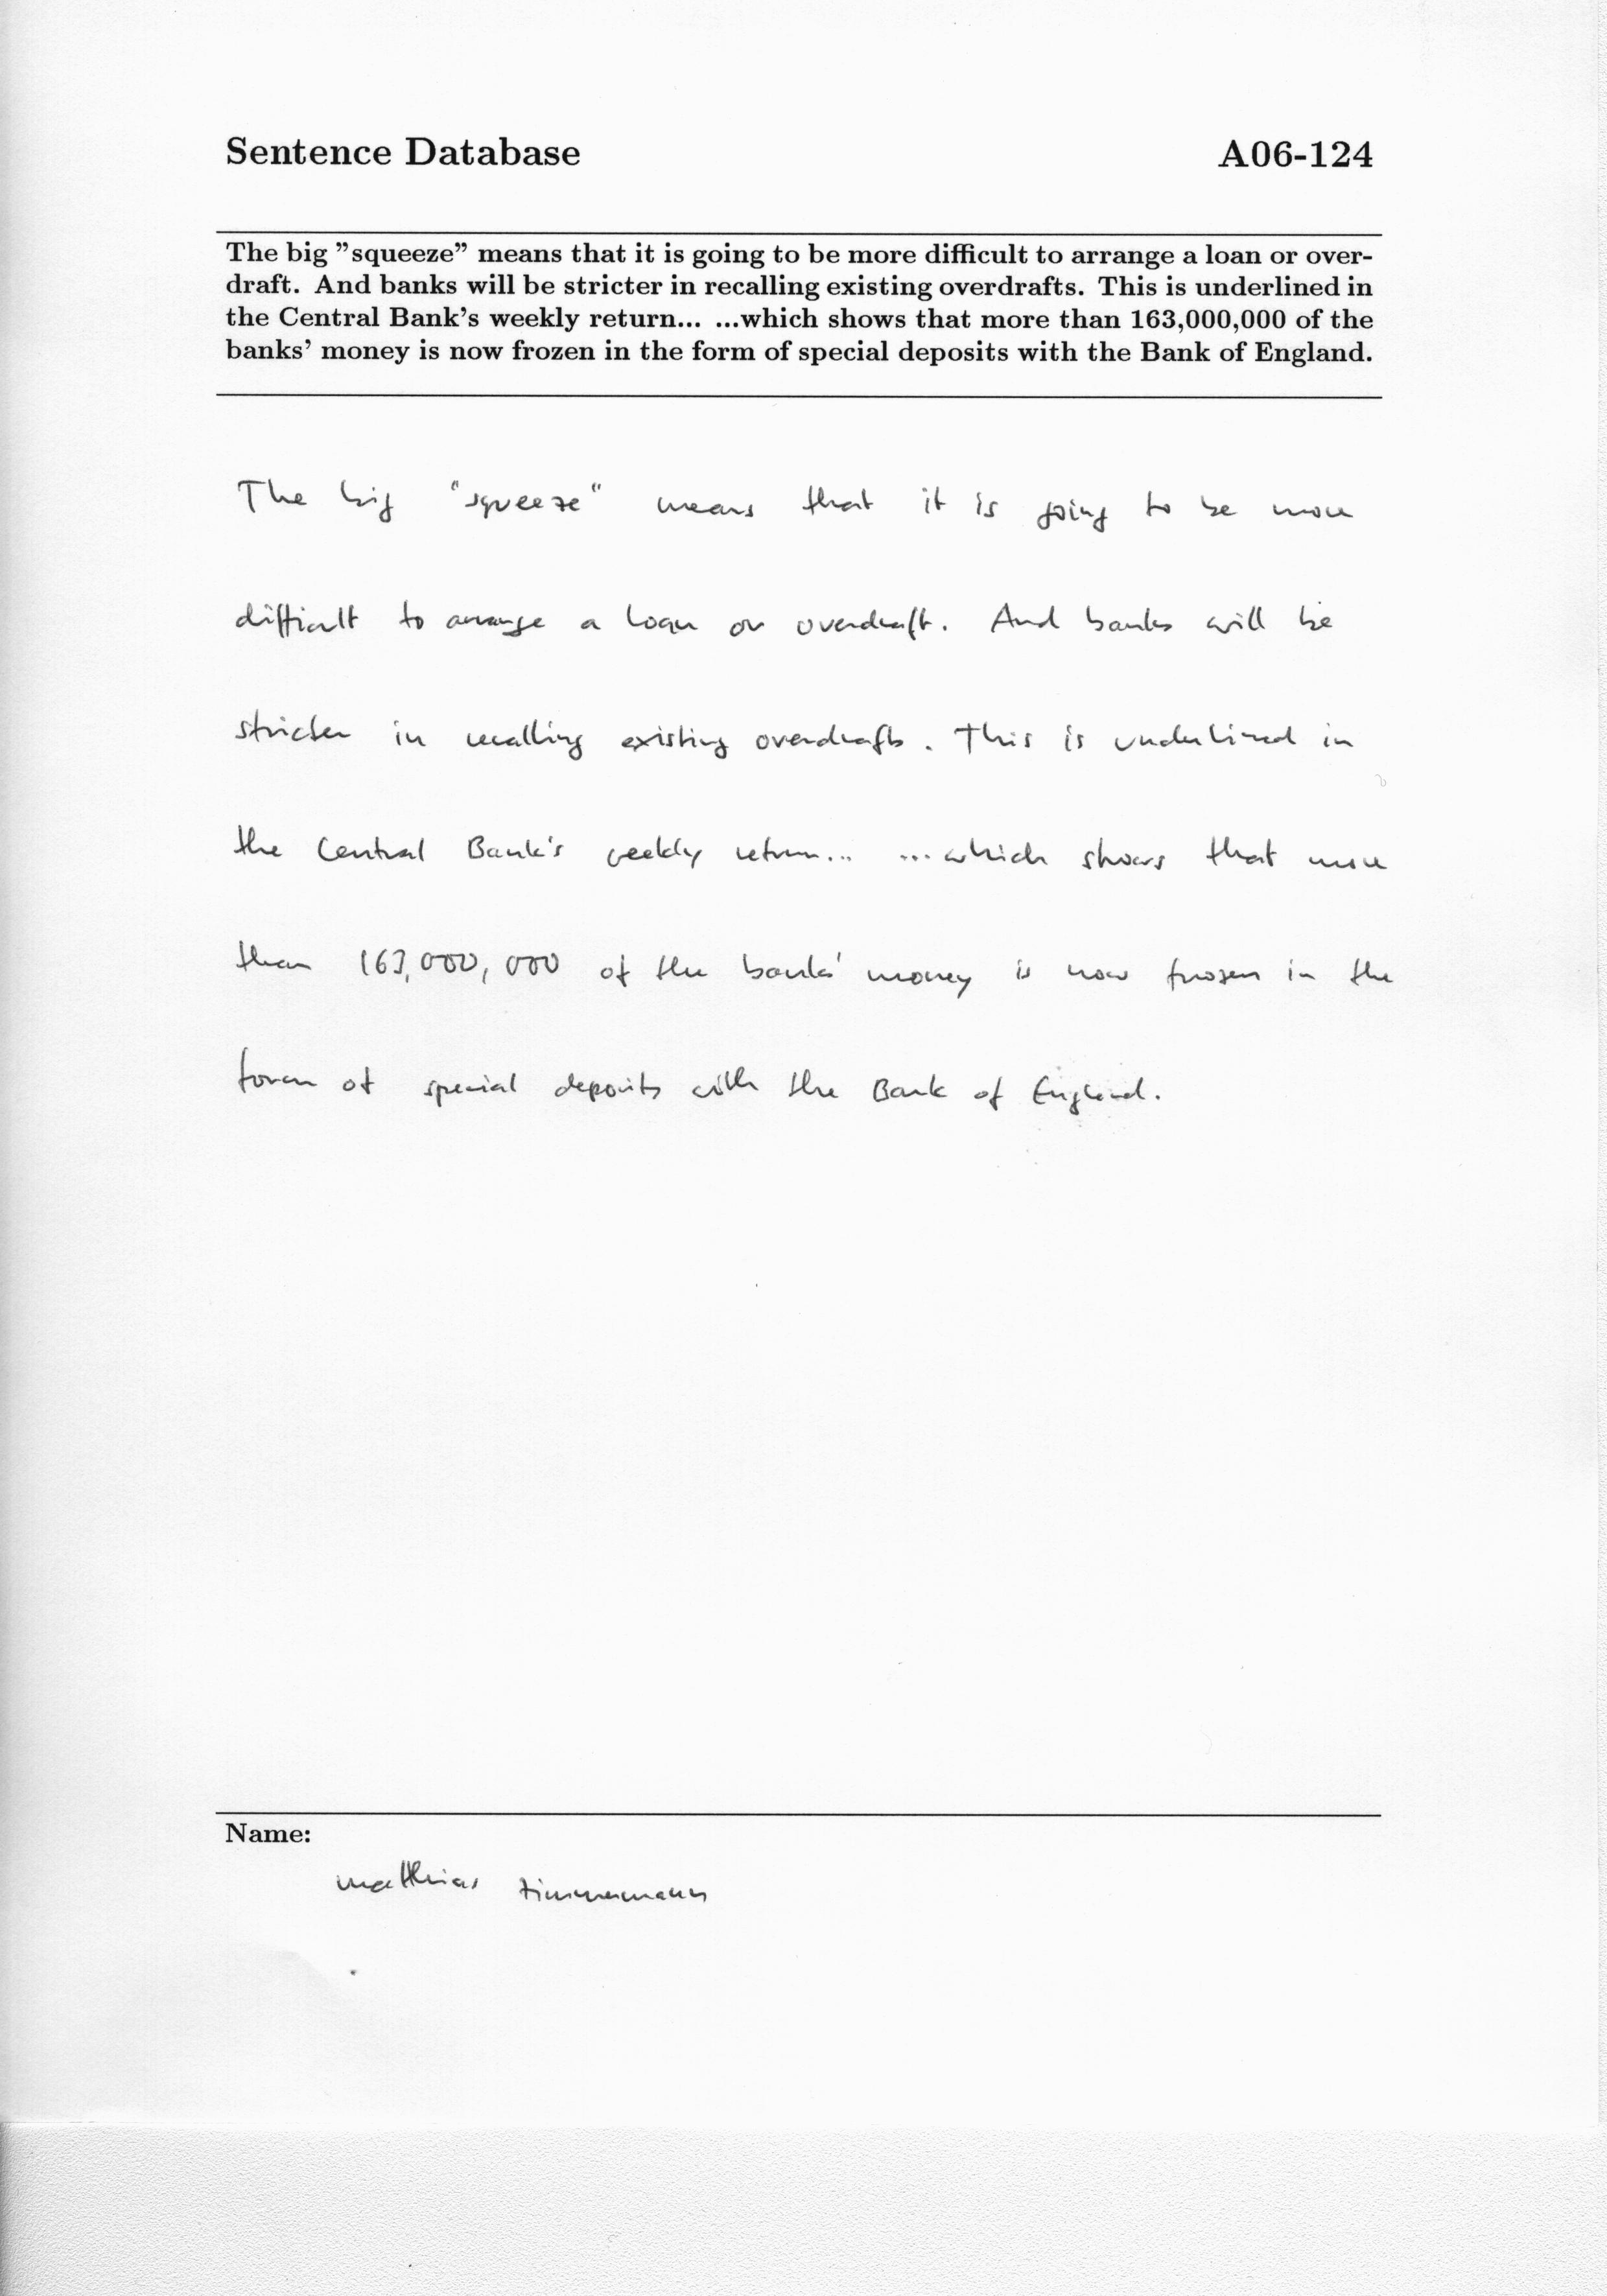 Sentence Database A06-124
The big ”squeeze” means that it is going to be more difficult to arrange a loan or over-
draft. And banks will be stricter in recalling existing overdrafts. This is underlined in
the Central Bank’s weekly return... ...which shows that more than 163,000,000 of the
banks’ money is now frozen in the form of special deposits with the Bank of England.
The big "squeeze" means that it is going to be more
difficult to arrange a loan or overdraft. And banks will be
stricter in recalling existing overdrafts. This is underlined in
the Central Bank's weekly return... ...which shows that more
than 163,000,000 of the banks' money is now frozen in the
form of special deposits with the Bank of England.
Name:
matthias zimmermann